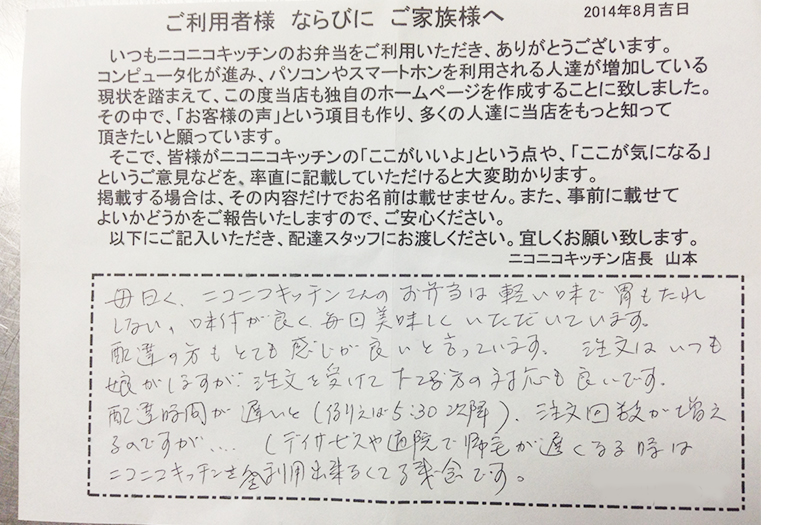 ご利用者様 ならびに ご家族様へ 2014年8月吉日
いつもニコニコキッチンのお弁当をご利用いただき、ありがとうございます。
コンピュータ化が進み、パソコンやスマートホンを利用される人達が増加している
現状を踏まえて、この度当店も独自のホームページを作成することに致しました。
その中で、「お客様の声」という項目も作り、多くの人達に当店をもっと知って
頂きたいと願っています。
そこで、皆様がニコニコキッチンの「ここがいいよ」という点や、「ここが気になる」
というご意見などを、率直に記載していただけると大変助かります。
掲載する場合は、その内容だけでお名前は載せません。また、事前に載せて
よいかどうかをご報告いたしますので、ご安心ください。
以下にご記入いただき、配達スタッフにお渡しください。宜しくお願い致します。
ニコニコキッチン店長 山本
母曰く、ニコニコキッチンさんのお弁当は軽い味で胃もたれ
しない。味付が良く、毎回美味しくいただいています。
配達の方もとても感じが良いと言っています。 注文はいつも
娘がしますが、注文を受けて下さる方の対応も良いです。
配達時間が遅いと(例えば5:30以降)、注文回数が増え
るのですが.... (デイサービスや通院で帰宅が遅くなる時は
ニコニコキッチンを利用出来なくて残念です。